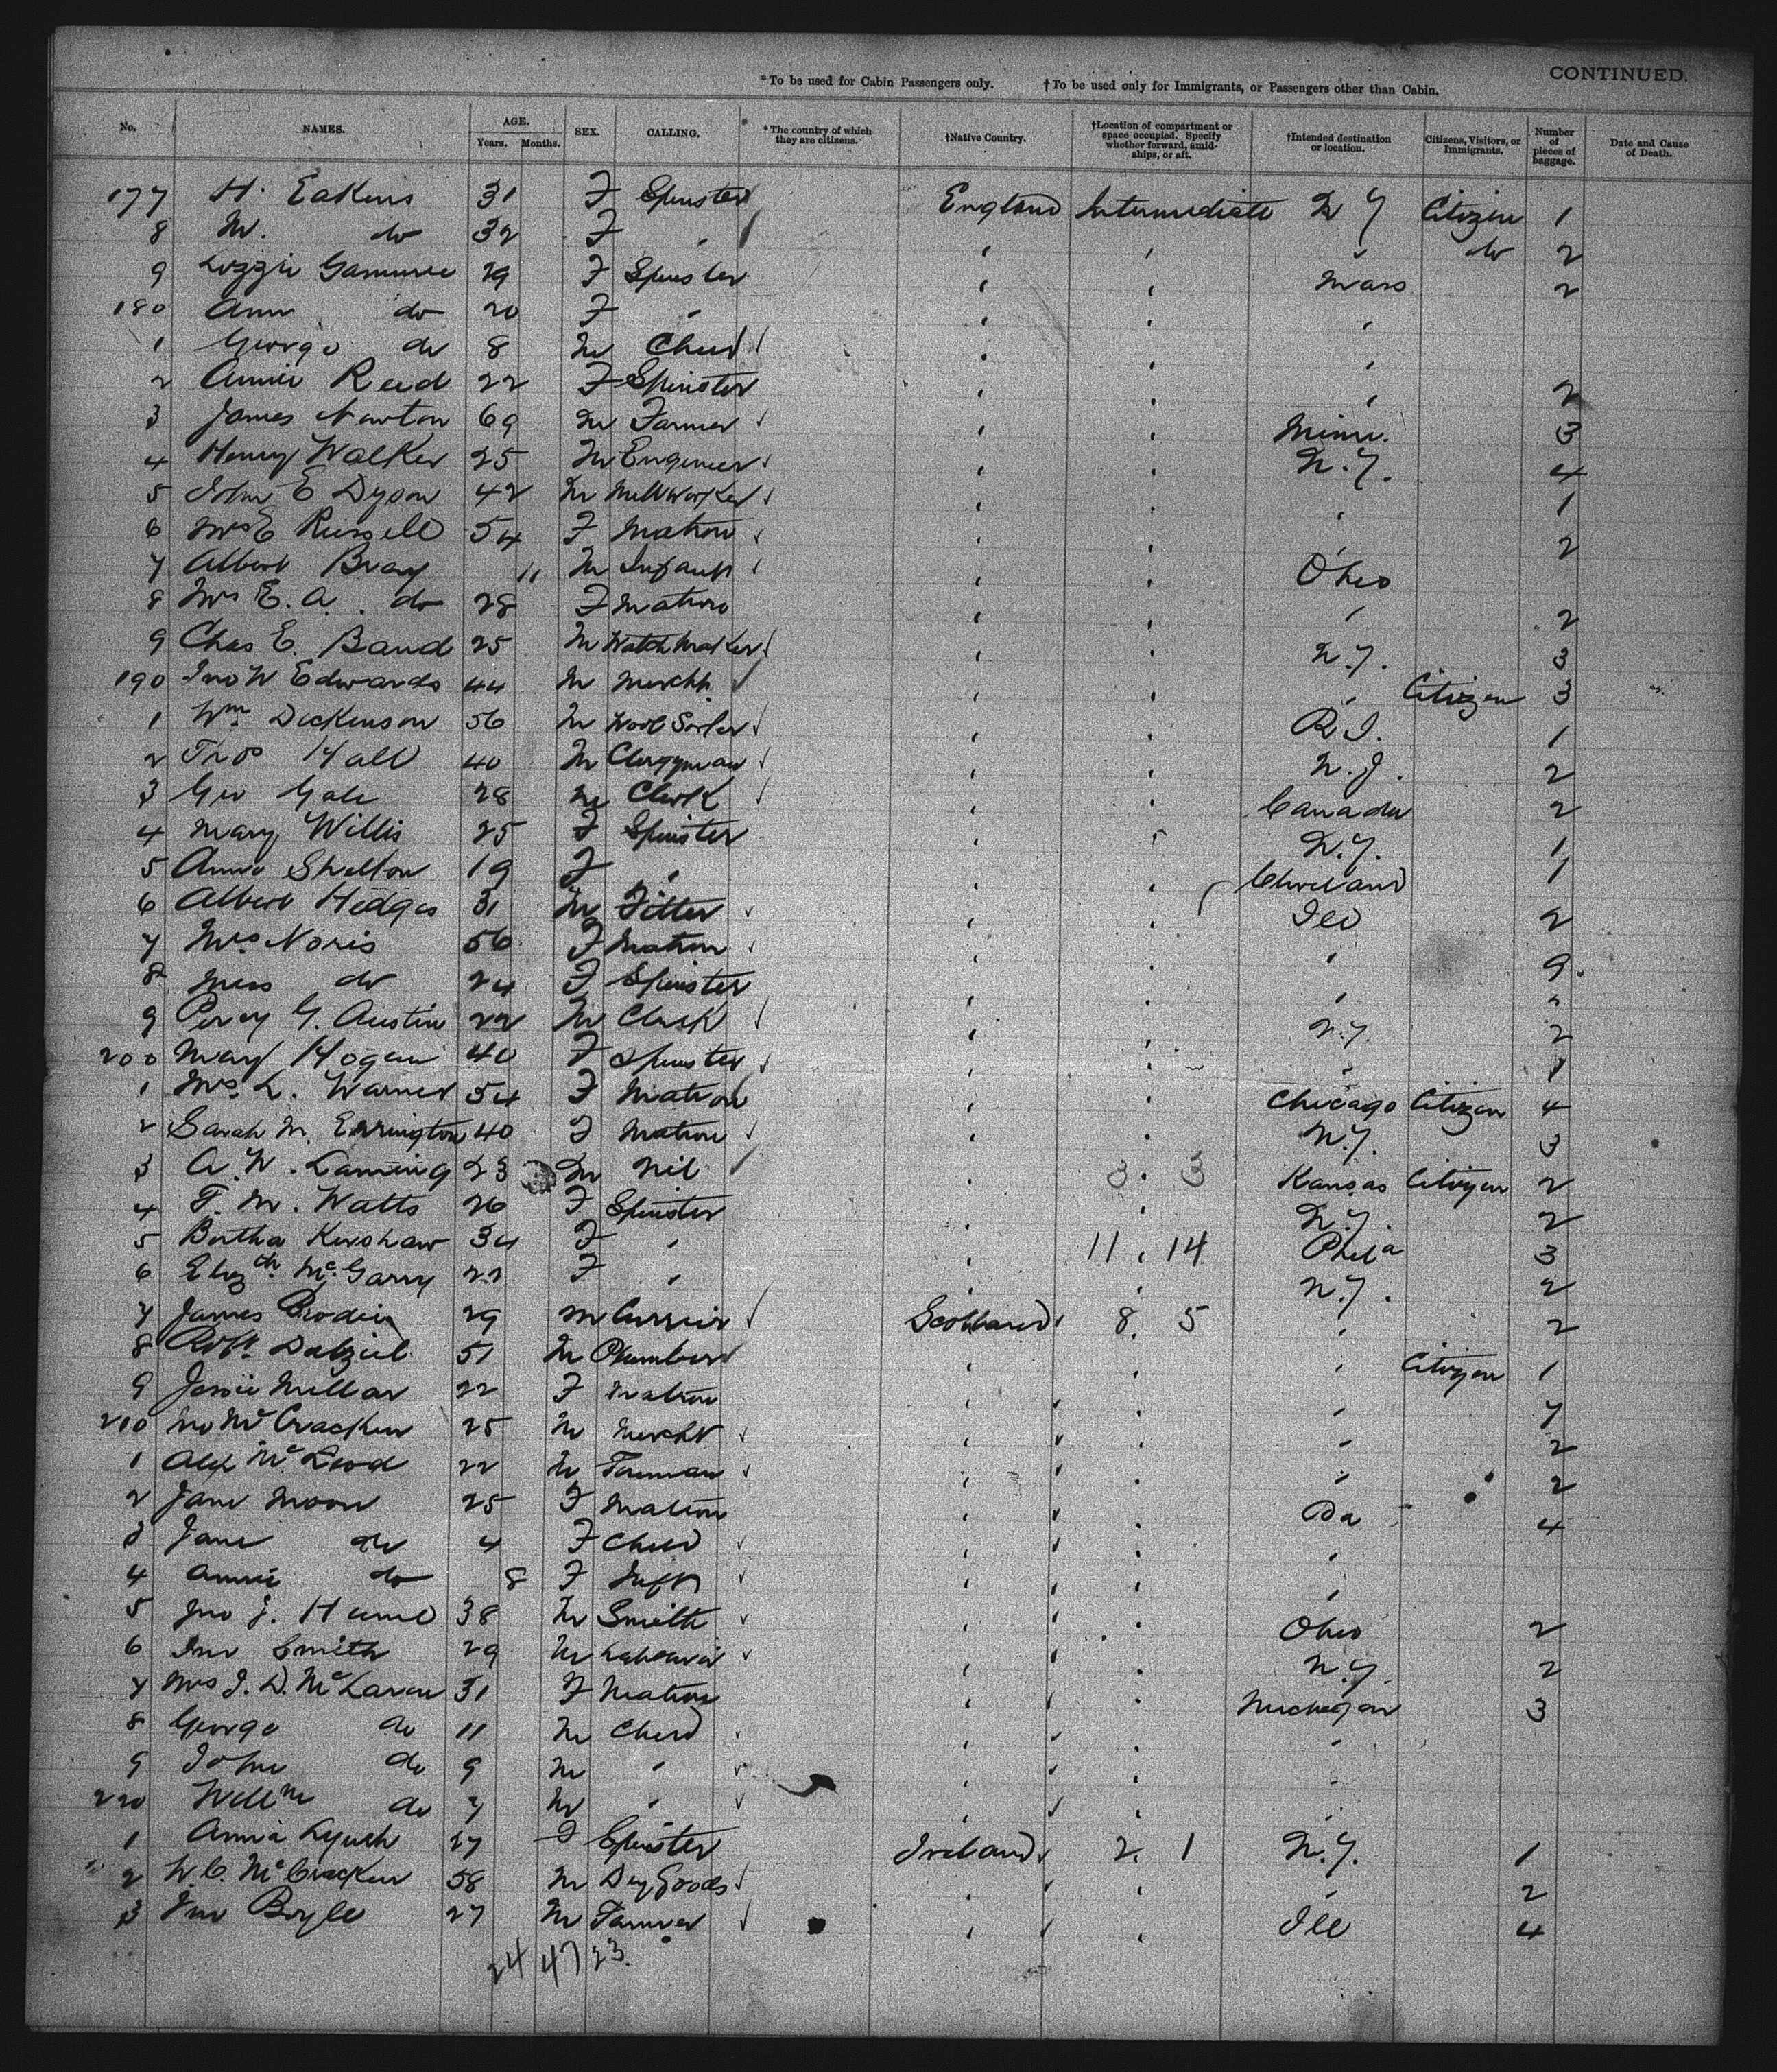 CONTINUED.
*To be used for Cabin Passengers only. †To be used only for Immigrants, or Passengers other than Cabin.
No. NAMES. AGE. Years. Months. SEX. CALLING. *The country of which they are citizens. †Native Country. †Location of compartment or space occupied. Specify whether forward, amidships, or aft. †Intended destination or location. Citizens, Visitors, or Immigrants. Number of pieces of baggage. Date and Cause of Death.
177 H. Eakins 31 F Spinster England Intermediate N Y Citizen 1
8 M. do 32 F " " " " do 2
9 Lizzie Gammie 29 F Spinster " " Mass 2
180 Ann do 20 F " " " "
1 George do 8 M Child " " "
2 Annie Reed 22 F Spinster " " " 2
3 James Newton 69 M Farmer " " Minn. 3
4 Henry Walker 25 M Engineer " " N.Y. 4
5 John E Dyson 42 M Millworker " " " 1
6 Mrs E Russell 54 F Matron " " " 2
7 Albert Bray 11 M Infant " " Ohio
8 Mrs E. A. do 28 F Matron " " " 2
9 Chas E. Band 25 M Watchmaker " " N.Y. 3
190 Jno W Edwards 44 M Mercht " " " Citizen 3
1 Wm Dickenson 56 M Wool Sorter " " R.I. 1
2 Thos Hall 40 M Clergyman " " N.J. 2
3 Geo Gale 28 M Clerk " " Canada 2
4 Mary Willis 25 F Spinster " " N.Y. 1
5 Annie Shelton 19 F " " " Cleveland 1
6 Albert Hedges 31 M Fitter " " Ill 2
7 Mrs Noris 56 F Matron " " " 9
8 Miss do 24 F Spinster " " " "
9 Percy G. Austin 22 M Clerk " " N.Y. 2
200 Mary Hogan 40 F Spinster " " " 1
1 Mrs L. Warner 54 F Matron " " Chicago Citizen 4
2 Sarah M. Errington 40 F Matron " " N.Y. 3
3 A. W. Laming 23 M Nil " 3. 3 Kansas Citizen 2
4 F. M. Watts 26 F Spinster " " N.Y. 2
5 Bertha Kershaw 34 F " " 11. 14 Phila 3
6 Elizth McGarry 22 F " " " N.Y. 2
7 James Brodie 29 M Currier Scotland 8. 5 " 2
8 Robt. Dalziel 51 M Plumber " " " Citizen 1
9 Jessie Millar 22 F Matron " " " 7
210 Jno McCracken 25 M Mercht " " " 2
1 Alex McLeod 22 M Foreman " " " 2
2 Jane Moon 25 F Matron " " Pa 4
3 Jane do 4 F Child " " "
4 Annie do 8 F Inft " " "
5 Jno J. Hume 38 M Smith " " Ohio 2
6 Jno Smith 29 M Labourer " " N.Y. 2
7 Mrs J. D. McLaren 31 F Matron " " Michigan 3
8 George do 11 M Child " " "
9 John do 9 M " " " "
220 Willm do 7 M " " " "
1 Annie Lynch 27 F Spinster Ireland 2. 1 N.Y. 1
2 W. C. McCracken 58 M Dry Goods " " " 2
3 Jno Boyle 27 M Farmer " " Ill 4
24 47 23.